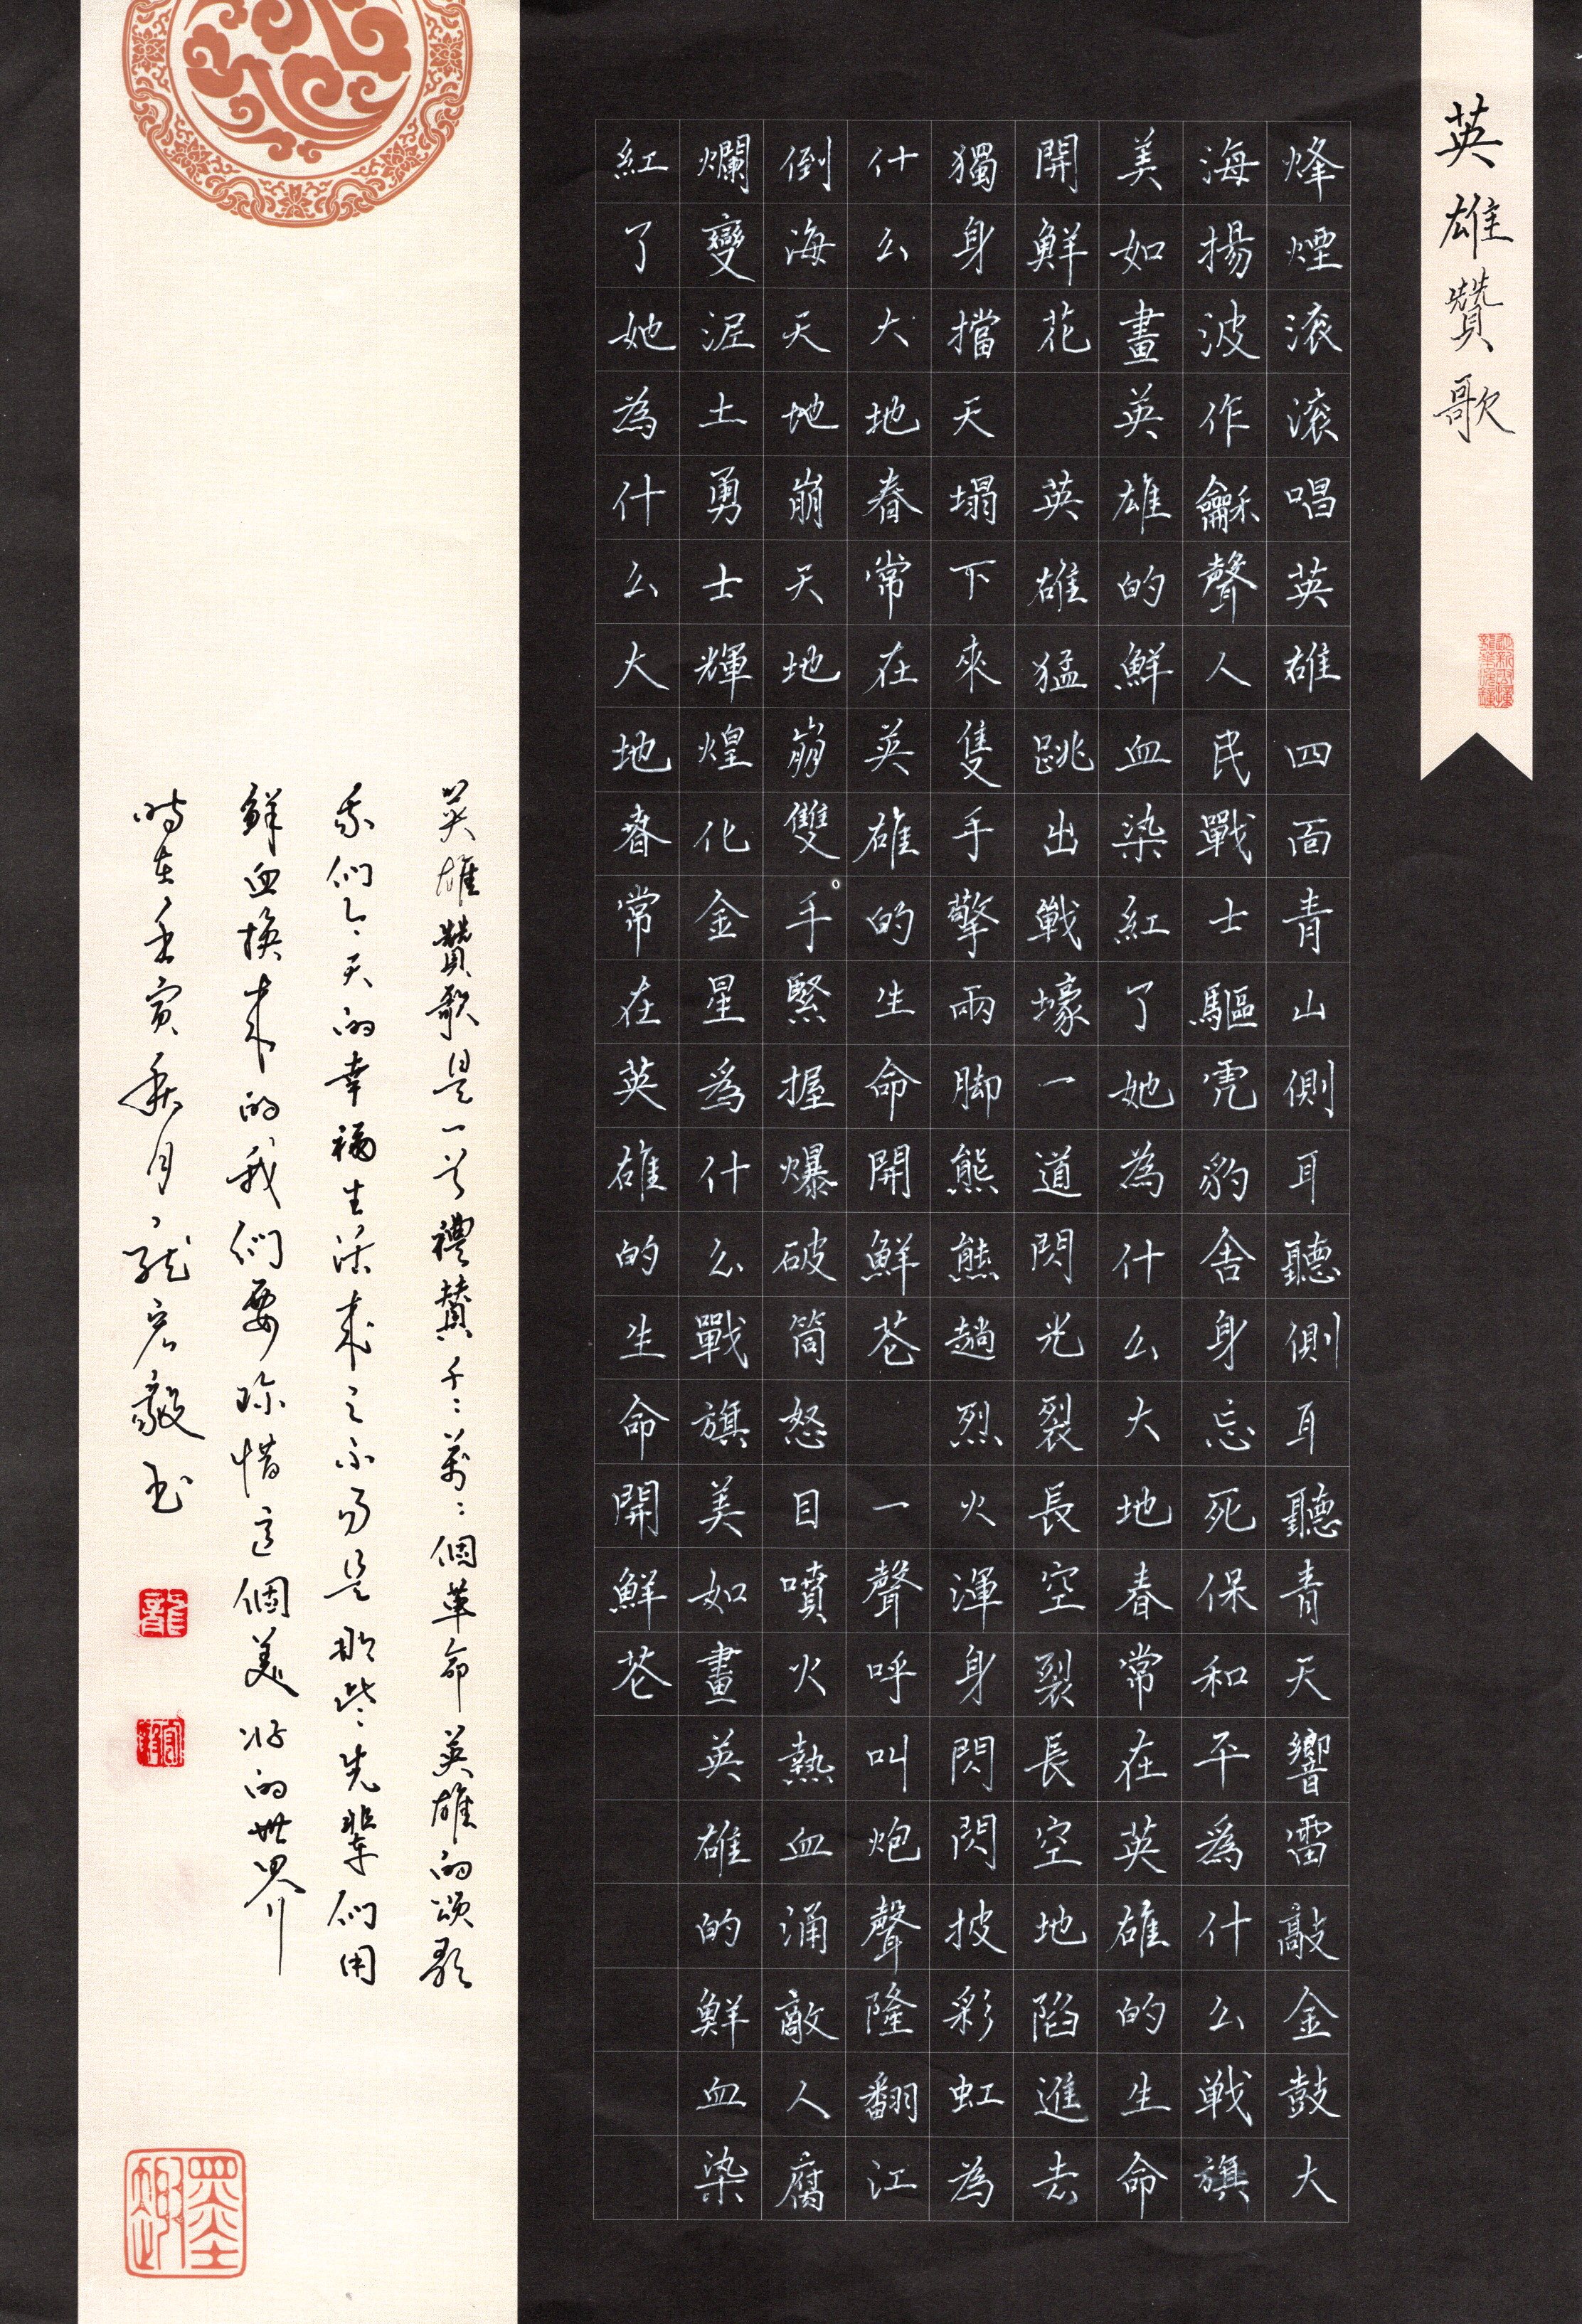 英雄贊歌
烽煙滚滚唱英雄四面青山側耳聽側耳聽青天響雷敲金鼓大
海揚波作龢聲人民戰士驅虎豹舍身忘死保和平爲什么戦旗
美如畫英雄的鮮血染紅了她為什么大地春常在英雄的生命
開鮮花 英雄猛跳出戰壕一道閃光裂長空裂長空地陷進去
獨身擋天塌下來隻手擎兩脚熊熊趟烈火渾身閃閃披彩虹為
什么大地春常在英雄的生命開鮮花 一聲呼叫炮聲隆翻江
倒海天地崩天地崩雙手緊握爆破筒怒目噴火熱血涌敵人腐
爛變泥土勇士輝煌化金星爲什么戰旗美如畫英雄的鮮血染
紅了她為什么大地春常在英雄的生命開鮮花
英雄贊歌是一首禮贊千千萬萬個革命英雄的頌歌
我們今天的幸福生活来之不易是那些先輩們用
鮮血换来的我們要珍惜這個美好的世界
時在壬寅秋月龍宏毅书
墨趣